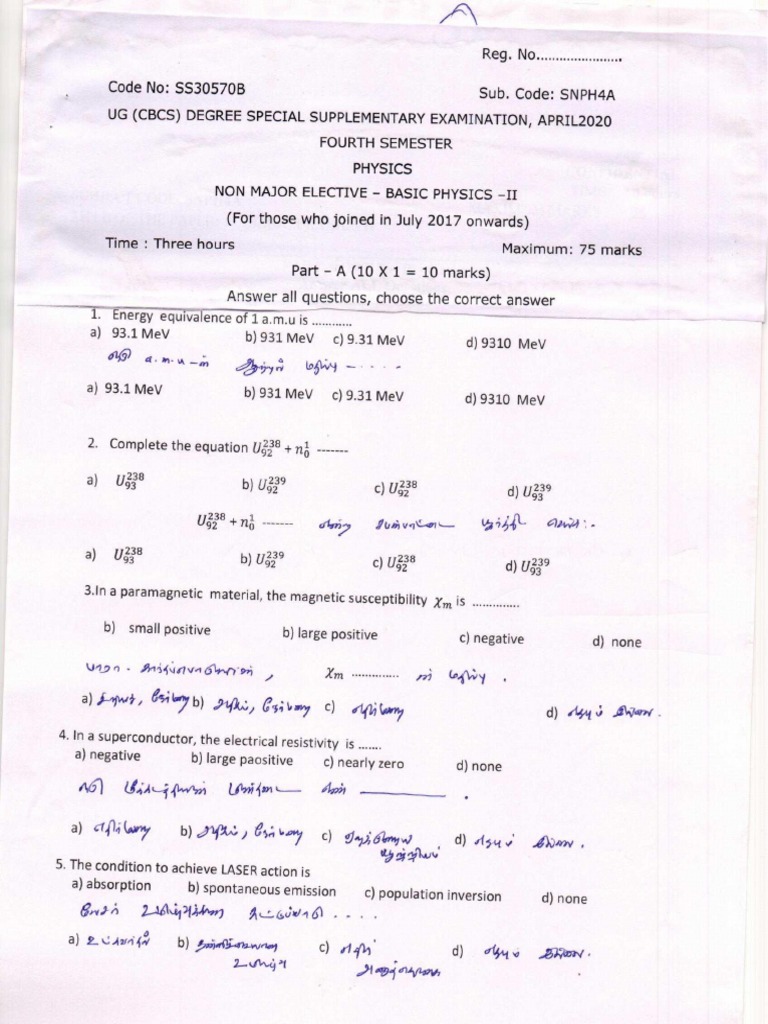 Reg. No.......................
Code No: SS30570B Sub. Code: SNPH4A
UG (CBCS) DEGREE SPECIAL SUPPLEMENTARY EXAMINATION, APRIL2020
FOURTH SEMESTER
PHYSICS
NON MAJOR ELECTIVE – BASIC PHYSICS –II
(For those who joined in July 2017 onwards)
Time : Three hours Maximum: 75 marks
Part – A (10 X 1 = 10 marks)
Answer all questions, choose the correct answer
1. Energy equivalence of 1 a.m.u is ............
a) 93.1 MeV b) 931 MeV c) 9.31 MeV d) 9310 MeV
a.m.u -ன் ஆற்றல் மதிப்பு – . . . .
a) 93.1 MeV b) 931 MeV c) 9.31 MeV d) 9310 MeV
2. Complete the equation U₉₂²³⁸ + n₀¹ -------
a) U₉₃²³⁸ b) U₉₂²³⁹ c) U₉₂²³⁸ d) U₉₃²³⁹
U₉₂²³⁸ + n₀¹ ------- என்ற சமன்பாட்டை பூர்த்தி செய்க:-
a) U₉₃²³⁸ b) U₉₂²³⁹ c) U₉₂²³⁸ d) U₉₃²³⁹
3.In a paramagnetic material, the magnetic susceptibility χₘ is ..............
b) small positive b) large positive c) negative d) none
χₘ .............. ன் மதிப்பு .
a) நேர்மறை b) அதிகம், நேர்மறை c) எதிர்மறை d) எதுவும் இல்லை.
4. In a superconductor, the electrical resistivity is .......
a) negative b) large paositive c) nearly zero d) none
மீக்கடத்தியின் மின்தடை எண் ———— .
a) எதிர்மறை b) அதிகம், நேர்மறை c) ஏறக்குறைய d) எதுவும் இல்லை.
பூஜ்ஜியம்
5. The condition to achieve LASER action is
a) absorption b) spontaneous emission c) population inversion d) none
லேசர் . . . .
a) உட்கவர்தல் b) தன்னிச்சையான c) எதிர் d) எதுவும் இல்லை.
உமிழ்வு